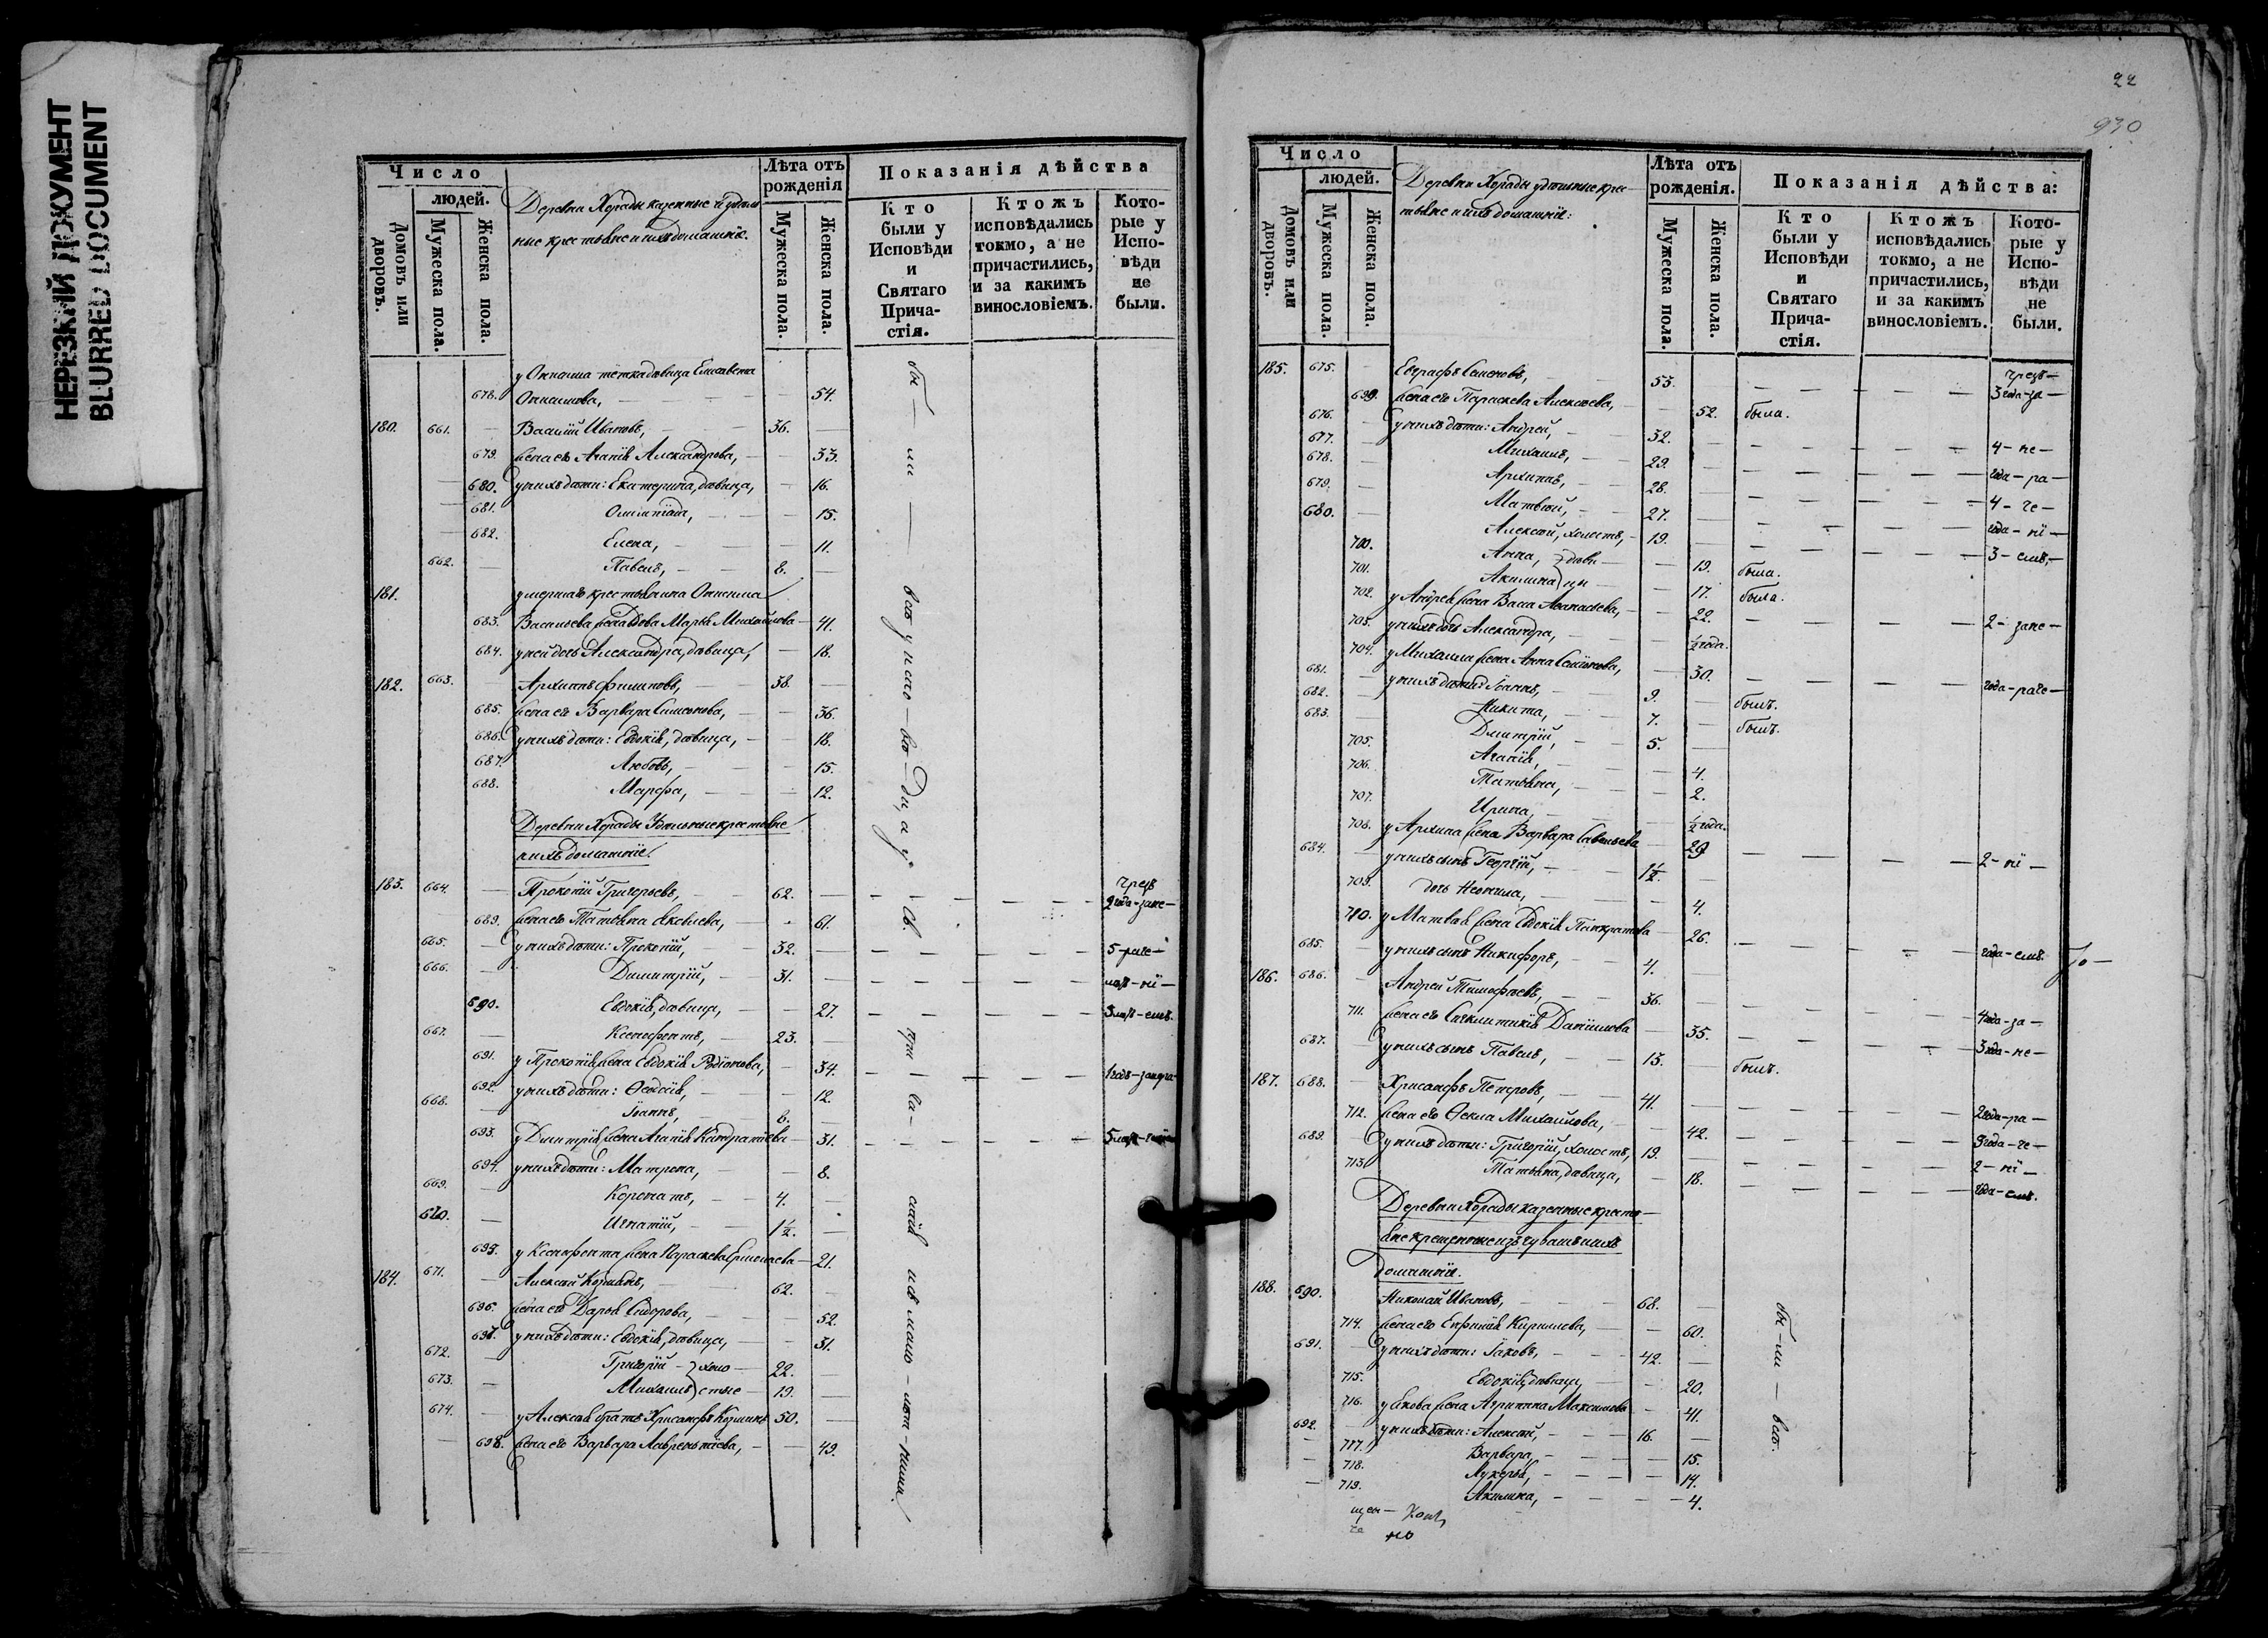 НЕРЕЗКИЙ ДОКУМЕНТ
BLURRED DOCUMENT
Число
людей.
Домовъ или дворовъ.
Мужеска пола.
Женска пола.
Деревни Хорады казенные и удѣль
ные крестьяне и ихъ домашніе.
Лѣта отъ рожденія
Мужеска пола.
Женска пола.
Показанія дѣйства
Кто были у Исповѣди и Святаго Прича-стія.
Ктожъ исповѣдались токмо, а не причастились, и за какимъ винословіемъ.
Кото-рые у Испо-вѣди не были.
у Онисима тетка девица Елисавета
678. Онисимова, 54.
180. 661. Василій Ивановъ, 36.
679. Жена его Агапія Александрова, 33.
680. у нихъ дѣти: Екатерина, дѣвица, 16.
681. Олимпіада, 15.
682. Елена, 11.
662. Павелъ, 8.
181. умершаго крестьянина Онисима
683. Васильева жена вдова Марья Михайлова 41.
684. у ней дочь Александра, дѣвица, 18.
182. 663. Архипъ Филиповъ, 38.
685. Жена его Варвара Симеонова, 36.
686. у нихъ дѣти: Евдокія, дѣвица, 18.
687. Любовь, 15.
688. Марфа, 12.
Деревни Хорады Удѣльные крестьяне
и ихъ домашніе.
183. 664. Прокопій Григорьевъ, 62. чрезъ 2 года - зане -
689. Жена его Татьяна Яковлева, 61.
665. у нихъ дѣти: Прокопій, 32. 5 - раче -
666. Димитрій, 31. лѣтъ - ні -
690. Евдокія, дѣвица, 27. 3 лѣтъ - емъ.
667. Ксенофонтъ, 23.
691. у Прокопія жена Евдокія Родіонова, 34.
692. у нихъ дѣти: Ѳеодосія, 12.
668. Іоаннъ, 6.
693. у Дмитрія жена Агапія Кондратіева 31.
694. у нихъ дѣти: Матрона, 8.
669. Коронатъ, 4.
670. Игнатій, 1½.
695. у Ксенофонта жена Параскева Ермолаева 21.
184. 671. Алексѣй Козминъ, 62.
696. Жена его Дарья Сидорова, 52.
697. у нихъ дѣти: Евдокія, дѣвица, 31.
672. Григорій - холо - 22.
673. Михаилъ стые - 19.
674. у Алексѣя братъ Хрисанфъ Козминъ 50.
698. Жена его Варвара Лаврентіева, 49.
22
930
Число
людей.
Домовъ или дворовъ.
Мужеска пола.
Женска пола.
Деревни Хорады удѣльные крес
тьяне и ихъ домашніе:
Лѣта отъ рожденія.
Мужеска пола.
Женска пола.
Показанія дѣйства:
Кто были у Исповѣди и Святаго Прича-стія.
Ктожъ исповѣдались токмо, а не причастились, и за какимъ винословіемъ.
Кото-рые у Испо-вѣди не были.
185. 675. Евграфъ Семеновъ, 53. чрезъ - 3 года - за -
699. Жена его Параскева Алексѣева, 52. была.
676. у нихъ дѣти: Андрей, 32. 4 - не -
677. Михаилъ, 29. года - ра -
678. Архипъ, 28. 4 - че -
679. Матвѣй, 27. года - ні -
680. Алексѣй, холостъ, 19. 3 - емъ, -
700. Анна, дѣви - 19. была.
701. Акилина цы - 17. была.
702. у Андрея жена Васса Аѳанасьева, 22. 2 - зане -
703. у нихъ дочь Александра, ½ года.
704. у Михаила жена Анна Семёнова, 30. года - раче -
681. у нихъ дѣти: Іоаннъ, 9. былъ.
682. Никита, 7. былъ.
683. Дмитрій, 5.
705. Агапія, 4.
706. Татьяна, 2.
707. Ирина, ½ года.
708. у Архипа жена Варвара Савельева 29 2 - ні -
684. у нихъ сынъ Георгій, 1½.
709. дочь Неонила, 4.
710. у Матвѣя жена Евдокія Панкратова 26. года - емъ.
685. у нихъ сынъ Никифоръ, 4.
186. 686. Андрей Тимофѣевъ, 36. 4 года - за -
711. Жена его Синклитикія Данилова 35. 3 года - не -
687. у нихъ сынъ Павелъ, 13. былъ.
187. 688. Хрисанфъ Петровъ, 41. 2 года - ра -
712. Жена его Ѳекла Михайлова, 42. 3 года - че -
689. у нихъ дѣти: Григорій, холостъ, 19. 2 - ні -
713. Татьяна, дѣвица, 18. года - емъ.
Деревни Хорады казенные кресть
яне крещеные изъ чувашъ и ихъ
домашніе.
188. 690. Николай Ивановъ, 68.
714. Жена его Евфимія Кирилова, 60.
691. у нихъ дѣти: Іаковъ, 42.
715. Евдокія, дѣвица, 20.
716. у Якова жена Агрипина Максимова 41.
692. у нихъ дѣти: Алексѣй, 16.
717. Варвара, 15.
718. Лукерья, 14.
719. Акилина, 4.